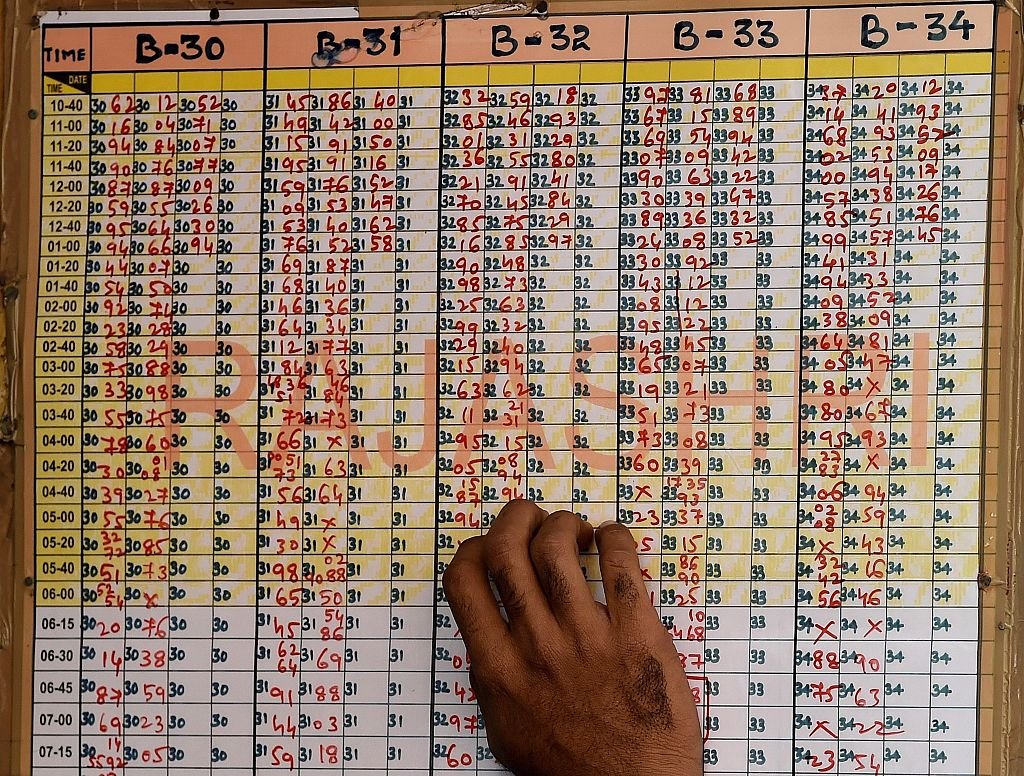 TIME B-30 B-31 B-32 B-33 B-34
DATE
TIME
10-40 30 62 30 12 30 52 30 31 45 31 86 31 40 31 32 32 32 59 32 18 32 33 97 33 81 33 68 33 34 37 34 20 34 12 34
11-00 30 16 30 04 30 71 30 31 49 31 42 31 00 31 32 85 32 46 32 93 32 33 67 33 15 33 89 33 34 14 34 41 34 93 34
11-20 30 94 30 84 30 07 30 31 15 31 91 31 50 31 32 01 32 31 32 29 32 33 69 33 54 33 94 33 34 68 34 93 34 34
11-40 30 90 30 76 30 77 30 31 95 31 91 31 16 31 32 36 32 55 32 80 32 33 07 33 09 33 42 33 34 02 34 53 34 09 34
12-00 30 87 30 87 30 09 30 31 59 31 76 31 52 31 32 21 32 91 32 41 32 33 90 33 63 33 22 33 34 00 34 94 34 17 34
12-20 30 59 30 55 30 26 30 31 09 31 53 31 47 31 32 70 32 45 32 84 32 33 30 33 39 33 47 33 34 57 34 38 34 26 34
12-40 30 95 30 64 30 30 30 31 53 31 40 31 62 31 32 85 32 75 32 29 32 33 89 33 36 33 32 33 34 85 34 51 34 76 34
01-00 30 94 30 66 30 94 30 31 76 31 52 31 58 31 32 16 32 85 32 97 32 33 24 33 08 33 52 33 34 99 34 57 34 45 34
01-20 30 44 30 07 30 30 31 69 31 87 31 31 32 90 32 48 32 32 33 30 33 92 33 33 34 41 34 31 34 34
01-40 30 54 30 50 30 30 31 68 31 40 31 31 32 98 32 73 32 32 33 43 33 12 33 33 34 94 34 33 34 34
02-00 30 92 30 74 30 30 31 46 31 36 31 31 32 25 32 63 32 32 33 08 33 12 33 33 34 09 34 52 34 34
02-20 30 23 30 28 30 30 31 64 31 34 31 31 32 99 32 32 32 32 33 95 33 22 33 33 34 38 34 09 34 34
02-40 30 58 30 29 30 30 31 12 31 77 31 31 32 29 32 40 32 32 33 48 33 45 33 33 34 64 34 81 34 34
03-00 30 75 30 88 30 30 31 84 31 63 31 31 32 15 32 94 32 32 33 65 33 07 33 33 34 05 34 47 34 34
03-20 30 33 30 98 30 30 31 31 46 84 31 31 32 63 32 62 32 32 33 19 33 21 33 33 34 80 34 X 34 34
03-40 30 55 30 75 30 30 31 72 31 73 31 31 32 11 32 21 31 32 32 33 51 33 73 33 33 34 80 34 67 34 34
04-00 30 78 30 60 30 30 31 66 31 X 31 31 32 95 32 15 32 32 33 73 33 08 33 33 34 95 34 93 34 34
04-20 30 30 30 01 08 30 30 31 73 31 63 31 31 32 05 32 08 94 32 32 33 60 33 39 33 33 34 27 83 34 X 34 34
04-40 30 39 30 27 30 30 31 56 31 64 31 31 32 15 87 32 94 32 32 33 X 33 17 35 93 33 33 34 06 34 94 34 34
05-00 30 55 30 76 30 30 31 49 31 X 31 31 32 94 32 33 23 33 37 33 33 34 02 08 34 59 34 34
05-20 30 32 72 30 85 30 30 31 30 31 X 31 31 32 5 33 15 33 33 34 X 34 43 34 34
05-40 30 51 30 73 30 30 31 98 31 02 88 31 31 32 33 86 90 33 33 34 32 42 34 16 34 34
06-00 30 52 54 30 X 30 30 31 65 31 50 31 31 32 33 25 33 33 34 56 34 46 34 34
06-15 30 20 30 76 30 30 31 45 31 54 86 31 31 32 10 68 33 33 34 X 34 X 34 34
06-30 30 14 30 38 30 30 31 62 64 31 69 31 31 32 37 33 33 34 88 34 90 34 34
06-45 30 87 30 59 30 30 31 91 31 88 31 31 32 42 33 33 34 75 34 63 34 34
07-00 30 69 30 23 30 30 31 44 31 03 31 31 32 97 33 33 34 X 34 22 34 34
07-15 30 14 55 92 30 05 30 30 31 59 31 18 31 31 32 60 33 33 34 23 34 54 34 34
RAJASHRI